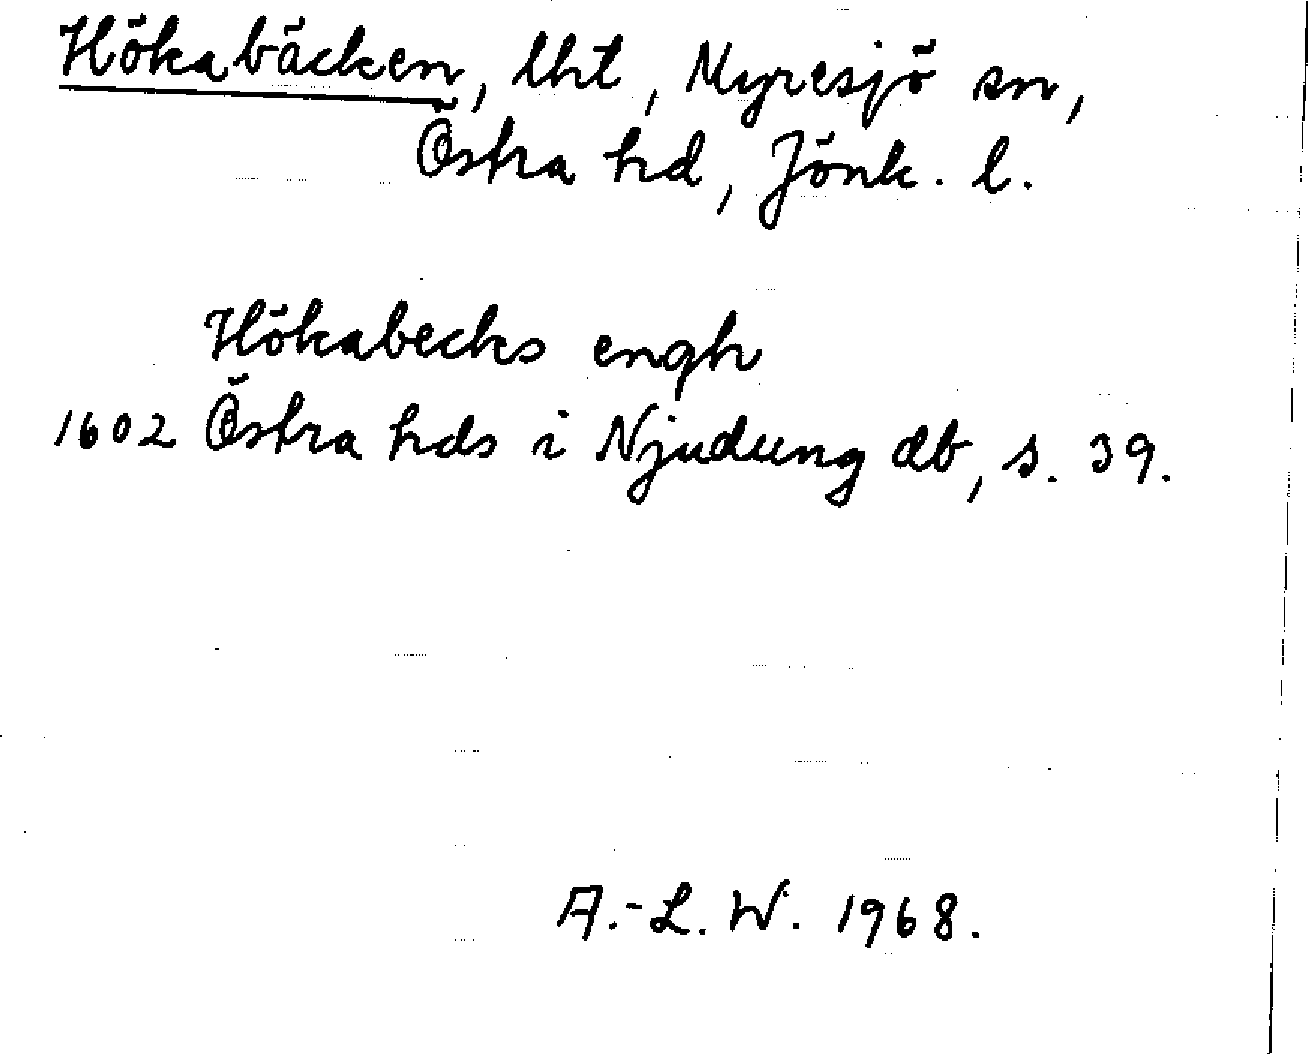 Hökabäcken, lht, Myresjö sn,
Östra hd, Jönk. l.
Hökabecks engh
1602 Östra hds i Njudung db, s. 39.
A.-L. W. 1968.